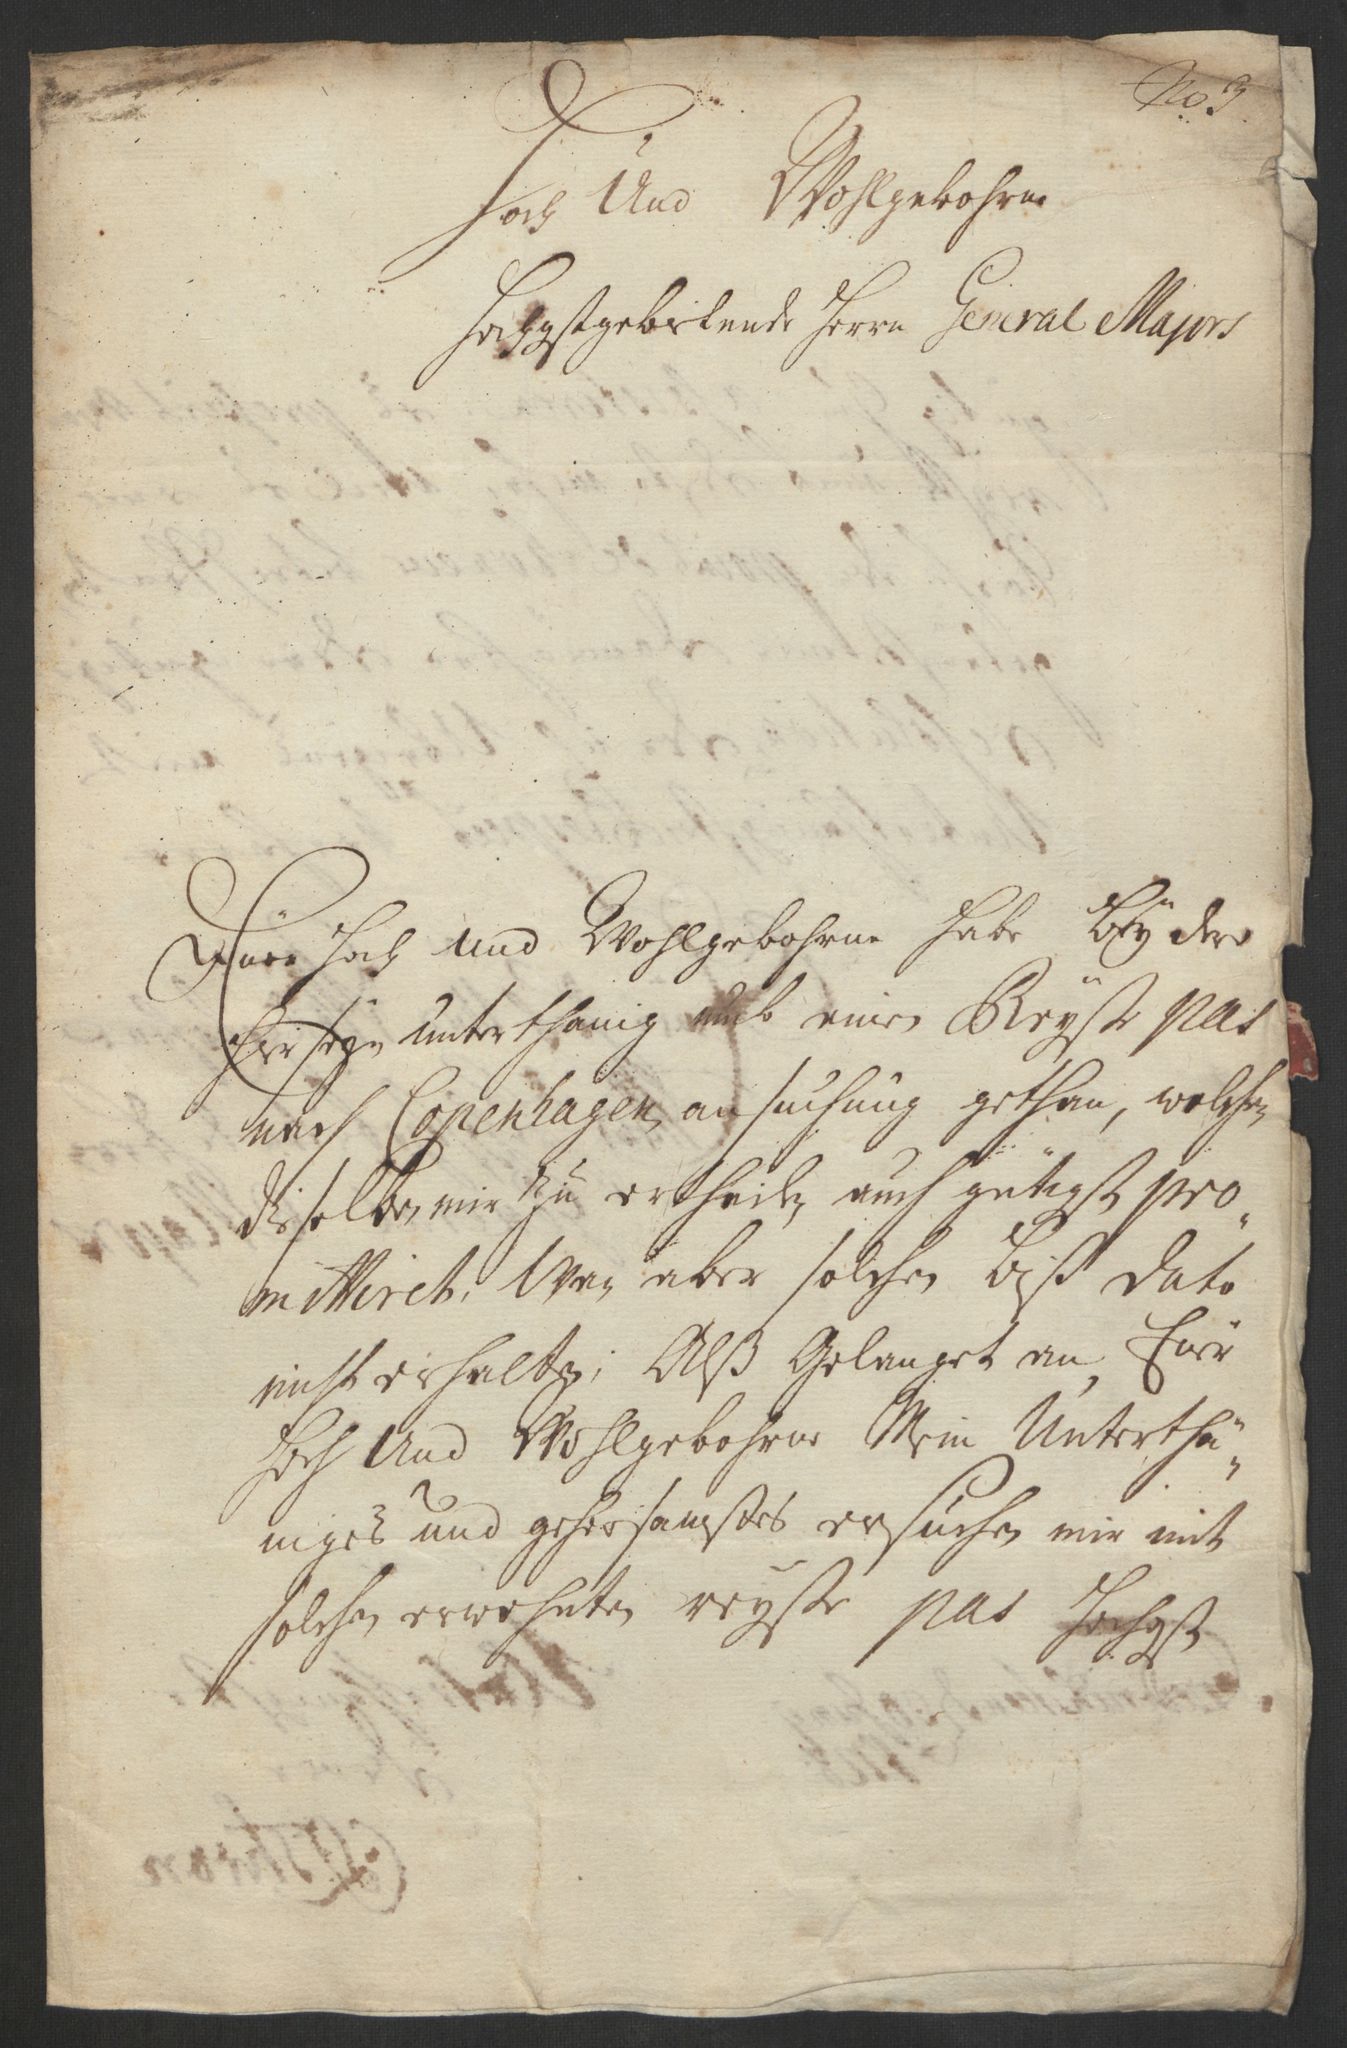 No 3
Hoch Und Wohlgebohrne
Höchstgebietende Herrn General Majors
Euer Hoch Und Wohlgebohrne habe beÿ dero
hier seÿn unterthänig umb einen Reÿse pas
nach Copenhagen ansuchung gethan, welchen
dieselben mir zu ertheilen auch gütigst pro-
mittiret. Wan aber solchen biß dato
nicht erhalten; Alß Gelanget an Euer
Hoch Und Wohlgebohrne Mein Unterthä-
niges und gehorsamstes ersuchen mir mit
solchen erwehnten reÿse pas Höchst